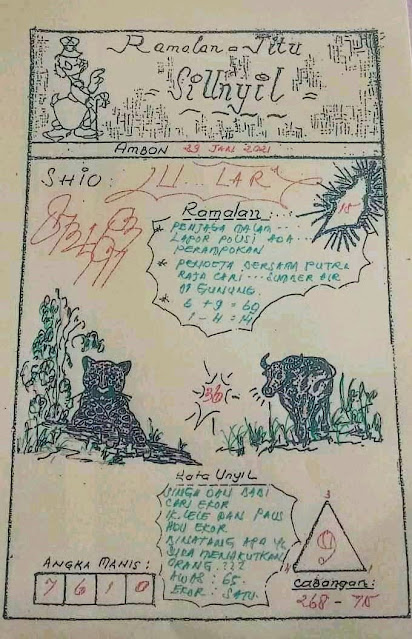 Ramalan = Jitu
Si Unyil
AMBON 29 JAN 2021
SHIO: ULAR
18
Ramalan:
* PENJAGA MALAM...
LAPOR POLISI ADA...
PERAMPOKAN
* PENDETA BERSAMA PUTRA
RAJA CARI... SUMBER AIR
DI GUNUNG.
* 6 + 9 = 69
1 - 4 = 14
36
Kata Unyil
SINGA DAN BABI
CARI EKOR
IK. LELE DAN PAUS
ADU EKOR
BINATANG APA YG
SUKA MENAKUTKAN
ORANG ???
AWAS : 65.
EKOR : SATU.
3
9
1
ANGKA MANIS:
7 6 1 0
Cabangan:
268 - 75